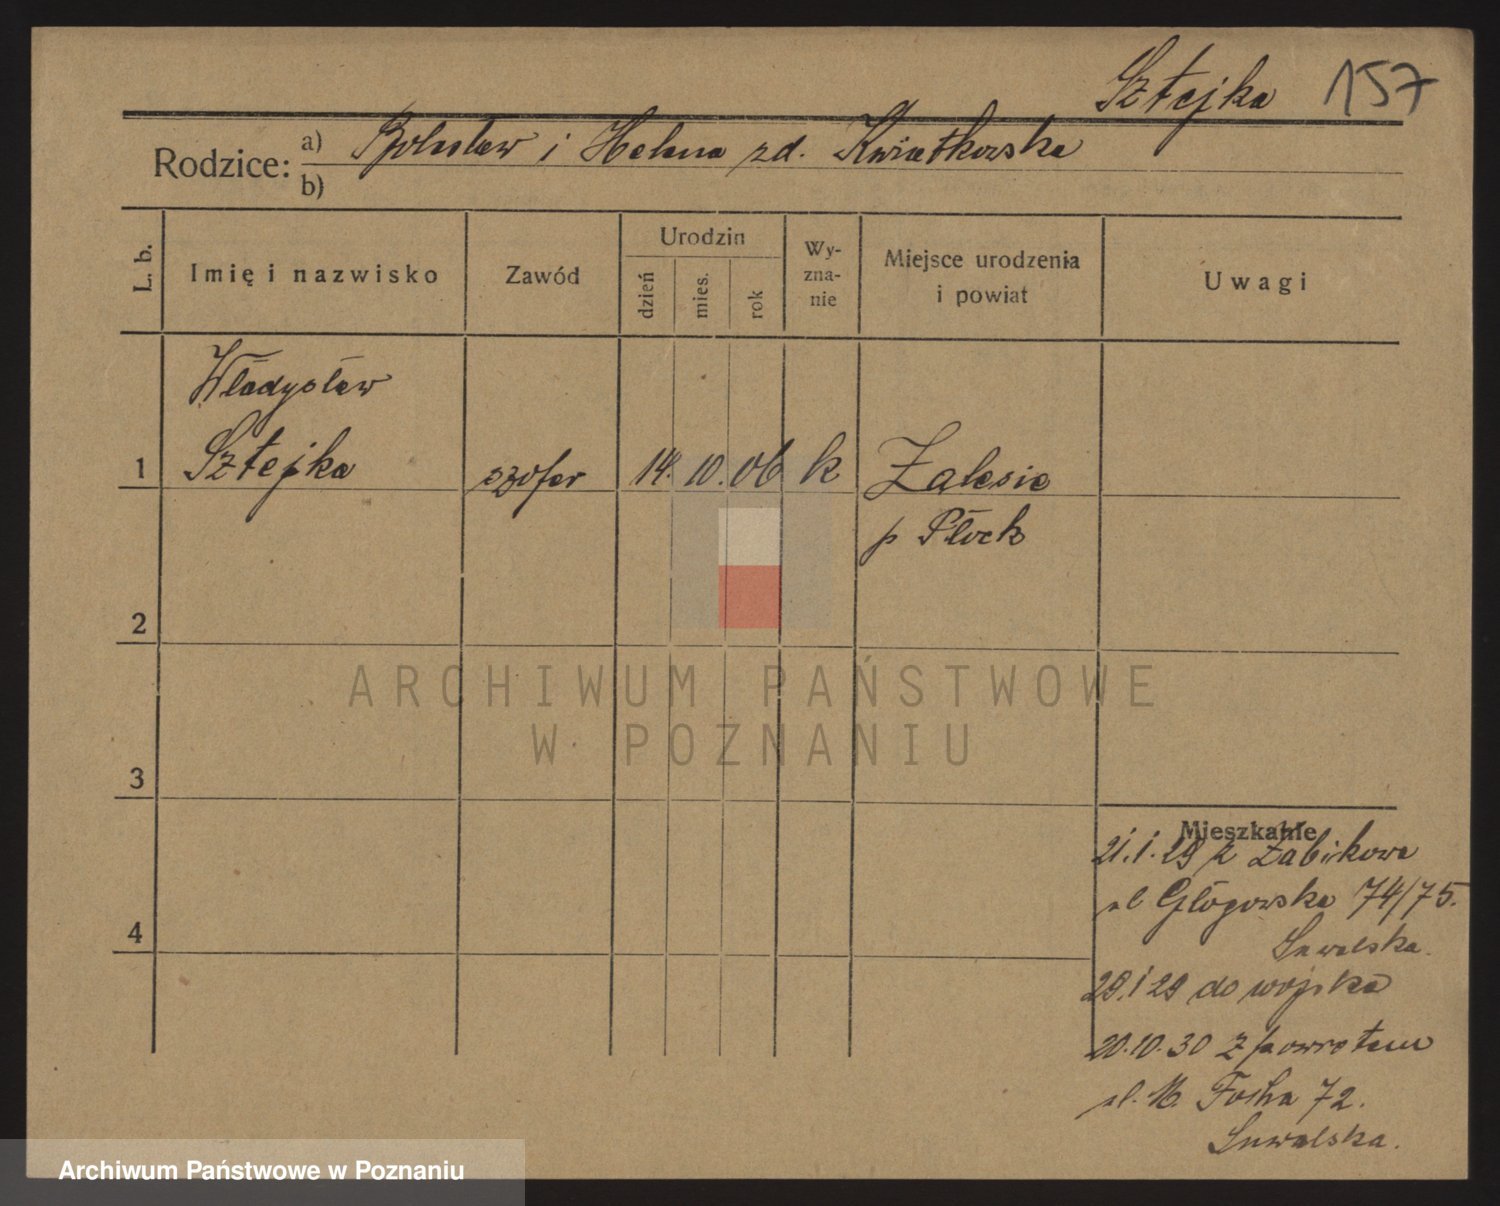 Sztejka 157
Rodzice: a) Bolesław i Helena zd. Kwiatkowska
b)
L. b.
Imię i nazwisko
Zawód
Urodzin
dzień
mies.
rok
Wy-
zna-
nie
Miejsce urodzenia
i powiat
Uwagi
Władysław
1 Sztejka szofer 14. 10. 06 k Zalesie
p Płock
2
3
4
Mieszkanie
21.1.29 z Żabikowa
ul Głogowska 74/75.
Suwalska.
29.1 29 do wojska
20.10.30 z powrotem
ul. M. Focha 72.
Suwalska.
ARCHIWUM PAŃSTWOWE
W POZNANIU
Archiwum Państwowe w Poznaniu